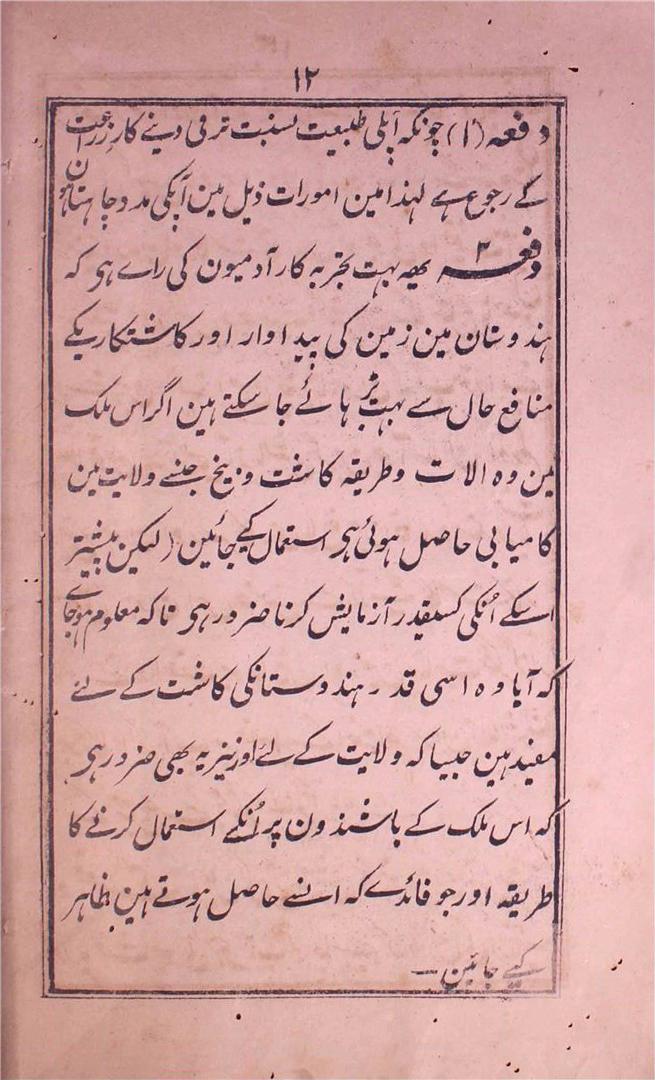 ۱۲
دفعہ (۱) چونکہ آپکی طبیعت نسبت ترقی دینے کار زراعت
کے رجوع ہے لہذا مین امورات ذیل مین آپکی مدد چاہتا ہون
دفعہ ۲ یھہ بہت تجربہ کار آدمیون کی راے ہی کہ
ہندوستان مین زمین کی پیداوار اور کاشتکاریکے
منافع حال سے بہت تر بڑہائے جا سکتے ہین اگر اس ملک
مین وہ الات وطریقہ کاشت و بیخ جنسے ولایت مین
کامیابی حاصل ہوئی ہی استعمال کیے جائین (لیکن پیشتر
اسکے اُنکی کسیقدر آزمایش کرنا ضرور ہی تاکہ معلوم ہوجاے
کہ آیا وہ اسی قدر ہندوستانکی کاشت کے لئے
مفید ہین جیسا کہ ولایت کے لئے اور نیز یہ بھی ضرور ہی
کہ اس ملک کے باشندون پر اُنکے استعمال کرنے کا
طریقہ اور جو فائدے کہ انسے حاصل ہوتے ہین ظاہر
کیے جائین —